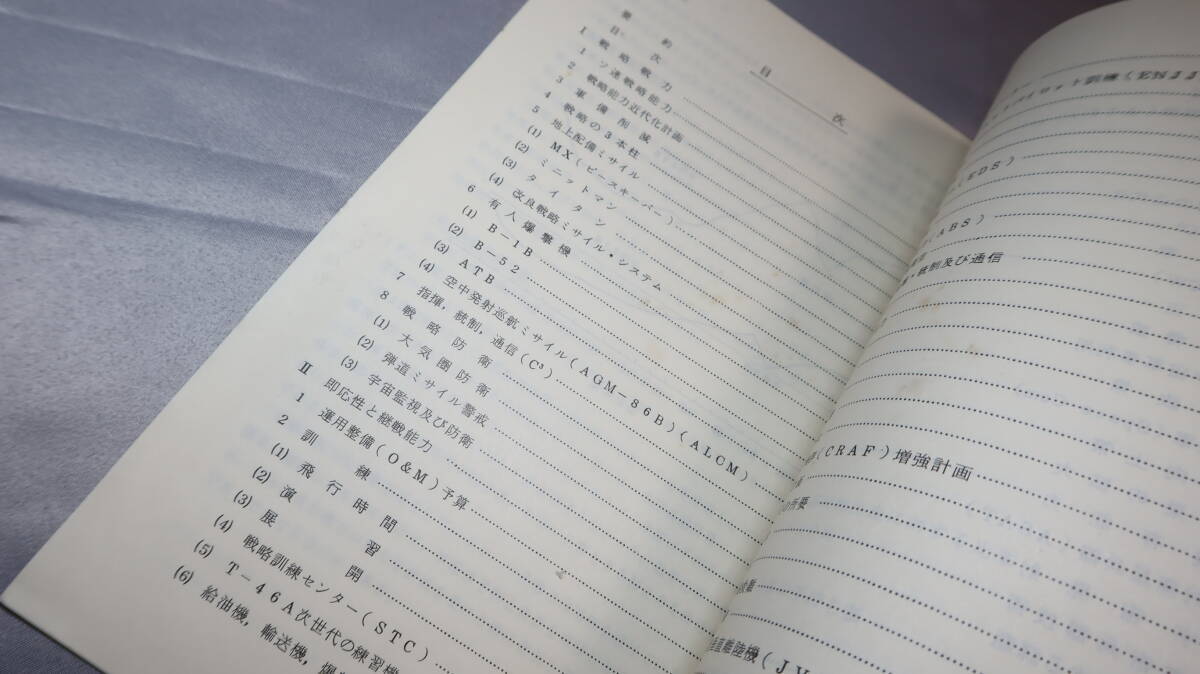 目次
要約
目次
I 戦略戦力
1 ソ連戦略能力
2 戦略能力近代化計画
3 軍備削減
4 戦略の3本柱
5 地上配備ミサイル
(1) MX(ピースキーパー)
(2) ミニットマン
(3) タイタン
(4) 改良戦略ミサイル・システム
6 有人爆撃機
(1) B-1B
(2) B-52
(3) ATB
(4) 空中発射巡航ミサイル(AGM-86B)(ALCM)
7 指揮,統制,通信(C³)
8 戦略防衛
(1) 大気圏防衛
(2) 弾道ミサイル警戒
(3) 宇宙監視及び防衛
II 即応性と継戦能力
1 運用整備(O&M)予算
2 訓練
(1) 飛行時間
(2) 演習
(3) 展開
(4) 戦略訓練センター(STC)
(5) T-46A次世代の練習機
(6) 給油機,輸送機,爆
EDS)
ABS)
・統制及び通信
(CRAF)増強計画
所要
離陸機(JV